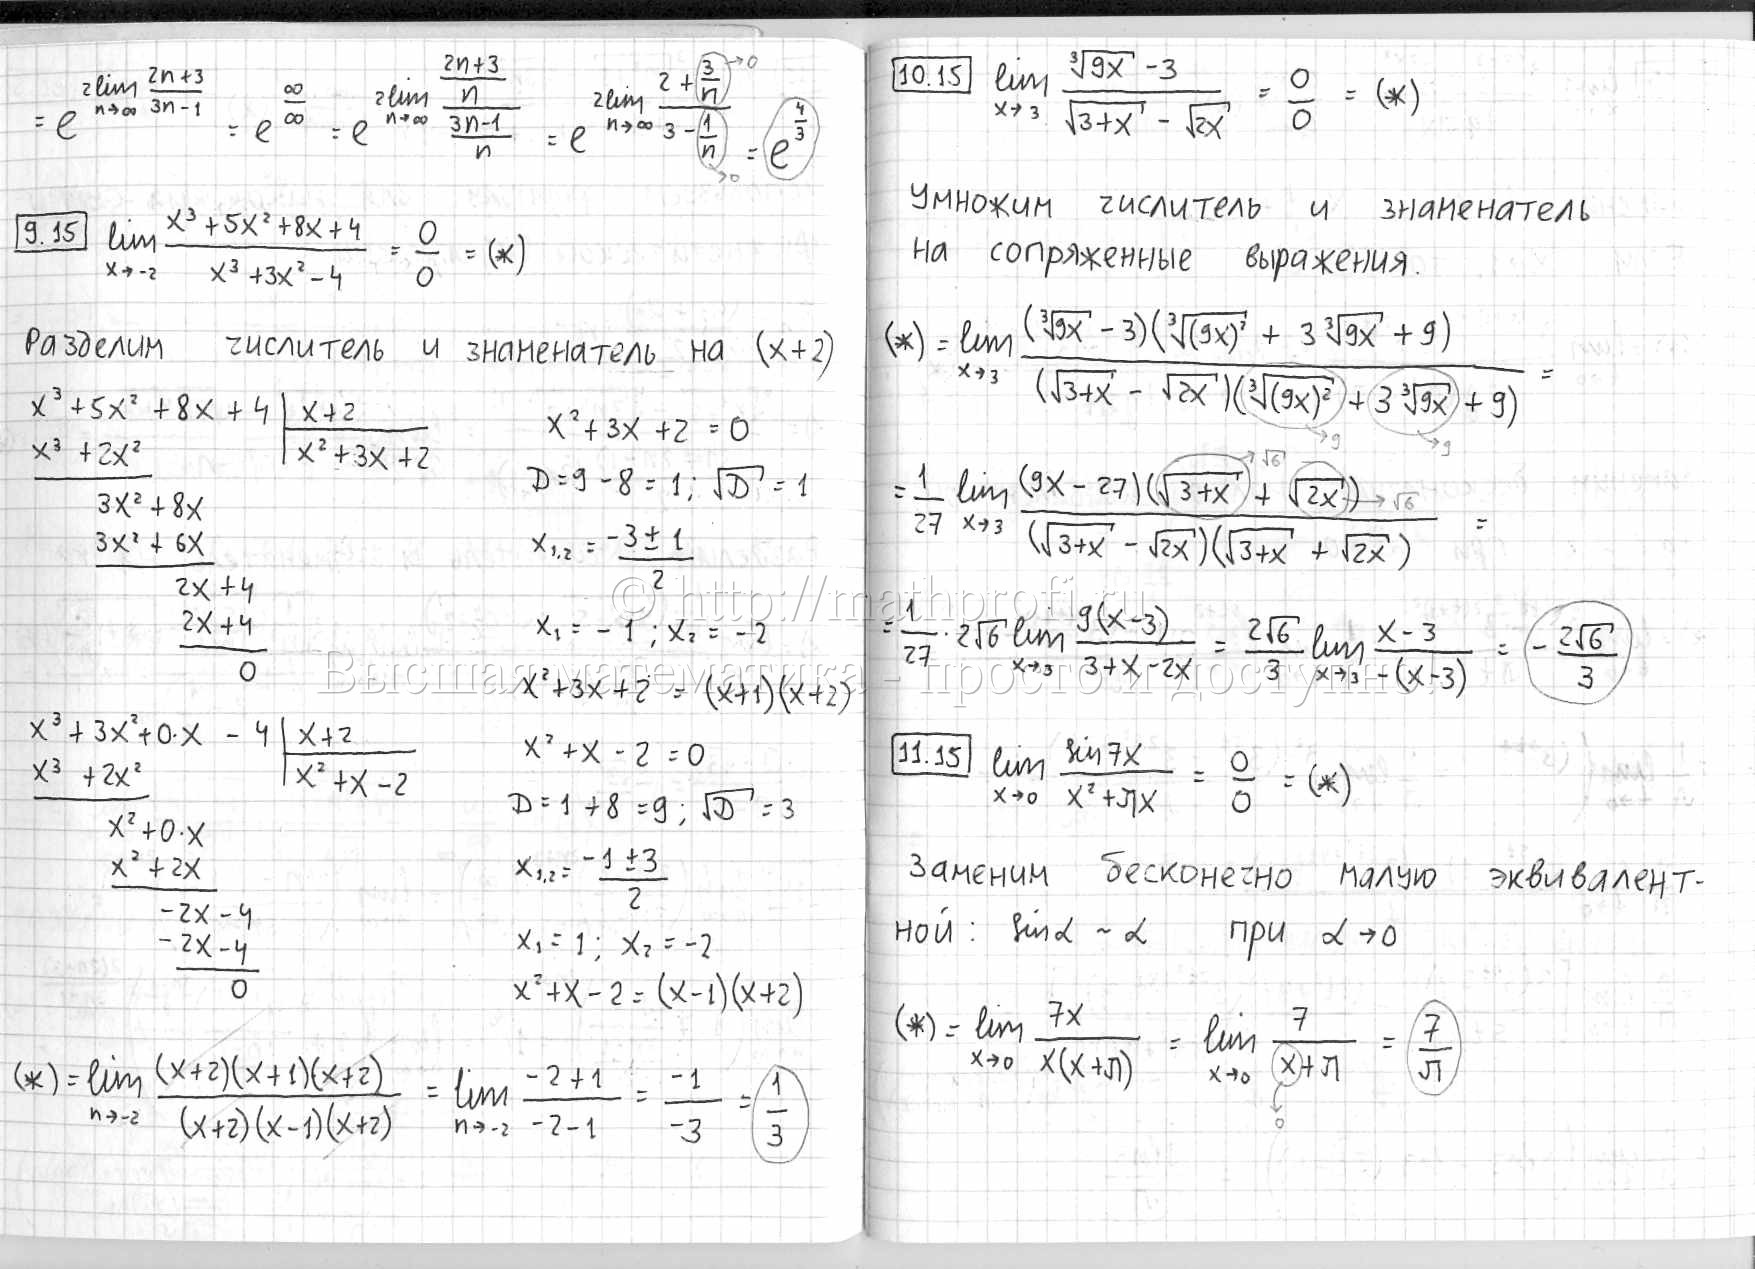 = e^{2 lim_{n→∞} (2n+3)/(3n-1)} = e^{∞/∞} = e^{2 lim_{n→∞} ((2n+3)/n)/((3n-1)/n)} = e^{2 lim_{n→∞} (2+3/n)/(3-1/n)} = e^{4/3}
→0
→0
9.15 lim_{x→-2} (x³+5x²+8x+4)/(x³+3x²-4) = 0/0 = (*)
Разделим числитель и знаменатель на (x+2)
x³+5x²+8x+4 | x+2
x³+2x² | x²+3x+2
3x²+8x
3x²+6x
2x+4
2x+4
0
x²+3x+2=0
D=9-8=1; √D=1
x₁,₂ = (-3±1)/2
x₁=-1; x₂=-2
x²+3x+2 = (x+1)(x+2)
x³+3x²+0·x-4 | x+2
x³+2x² | x²+x-2
x²+0·x
x²+2x
-2x-4
-2x-4
0
x²+x-2=0
D=1+8=9; √D=3
x₁,₂ = (-1±3)/2
x₁=1; x₂=-2
x²+x-2=(x-1)(x+2)
(*) = lim_{n→-2} ((x+2)(x+1)(x+2))/((x+2)(x-1)(x+2)) = lim_{n→-2} (-2+1)/(-2-1) = -1/-3 = 1/3
10.15 lim_{x→3} (∛9x-3)/(√3+x - √2x) = 0/0 = (*)
Умножим числитель и знаменатель
на сопряженные выражения.
(*) = lim_{x→3} ((∛9x-3)(∛(9x)²+3∛9x+9))/((√3+x - √2x)(∛(9x)²+3∛9x+9)) =
→9 →9
= 1/27 lim_{x→3} ((9x-27)(√3+x + √2x))/((√3+x - √2x)(√3+x + √2x)) =
→√6 →√6
= 1/27 · 2√6 lim_{x→3} 9(x-3)/(3+x-2x) = 2√6/3 lim_{x→3} (x-3)/(-(x-3)) = -2√6/3
11.15 lim_{x→0} sin7x/(x²+πx) = 0/0 = (*)
Заменим бесконечно малую эквивалент-
ной: sinα ~ α при α→0
(*) = lim_{x→0} 7x/(x(x+π)) = lim_{x→0} 7/(x+π) = 7/π
→0
© http://mathprofi.ru
Высшая математика - просто и доступно!